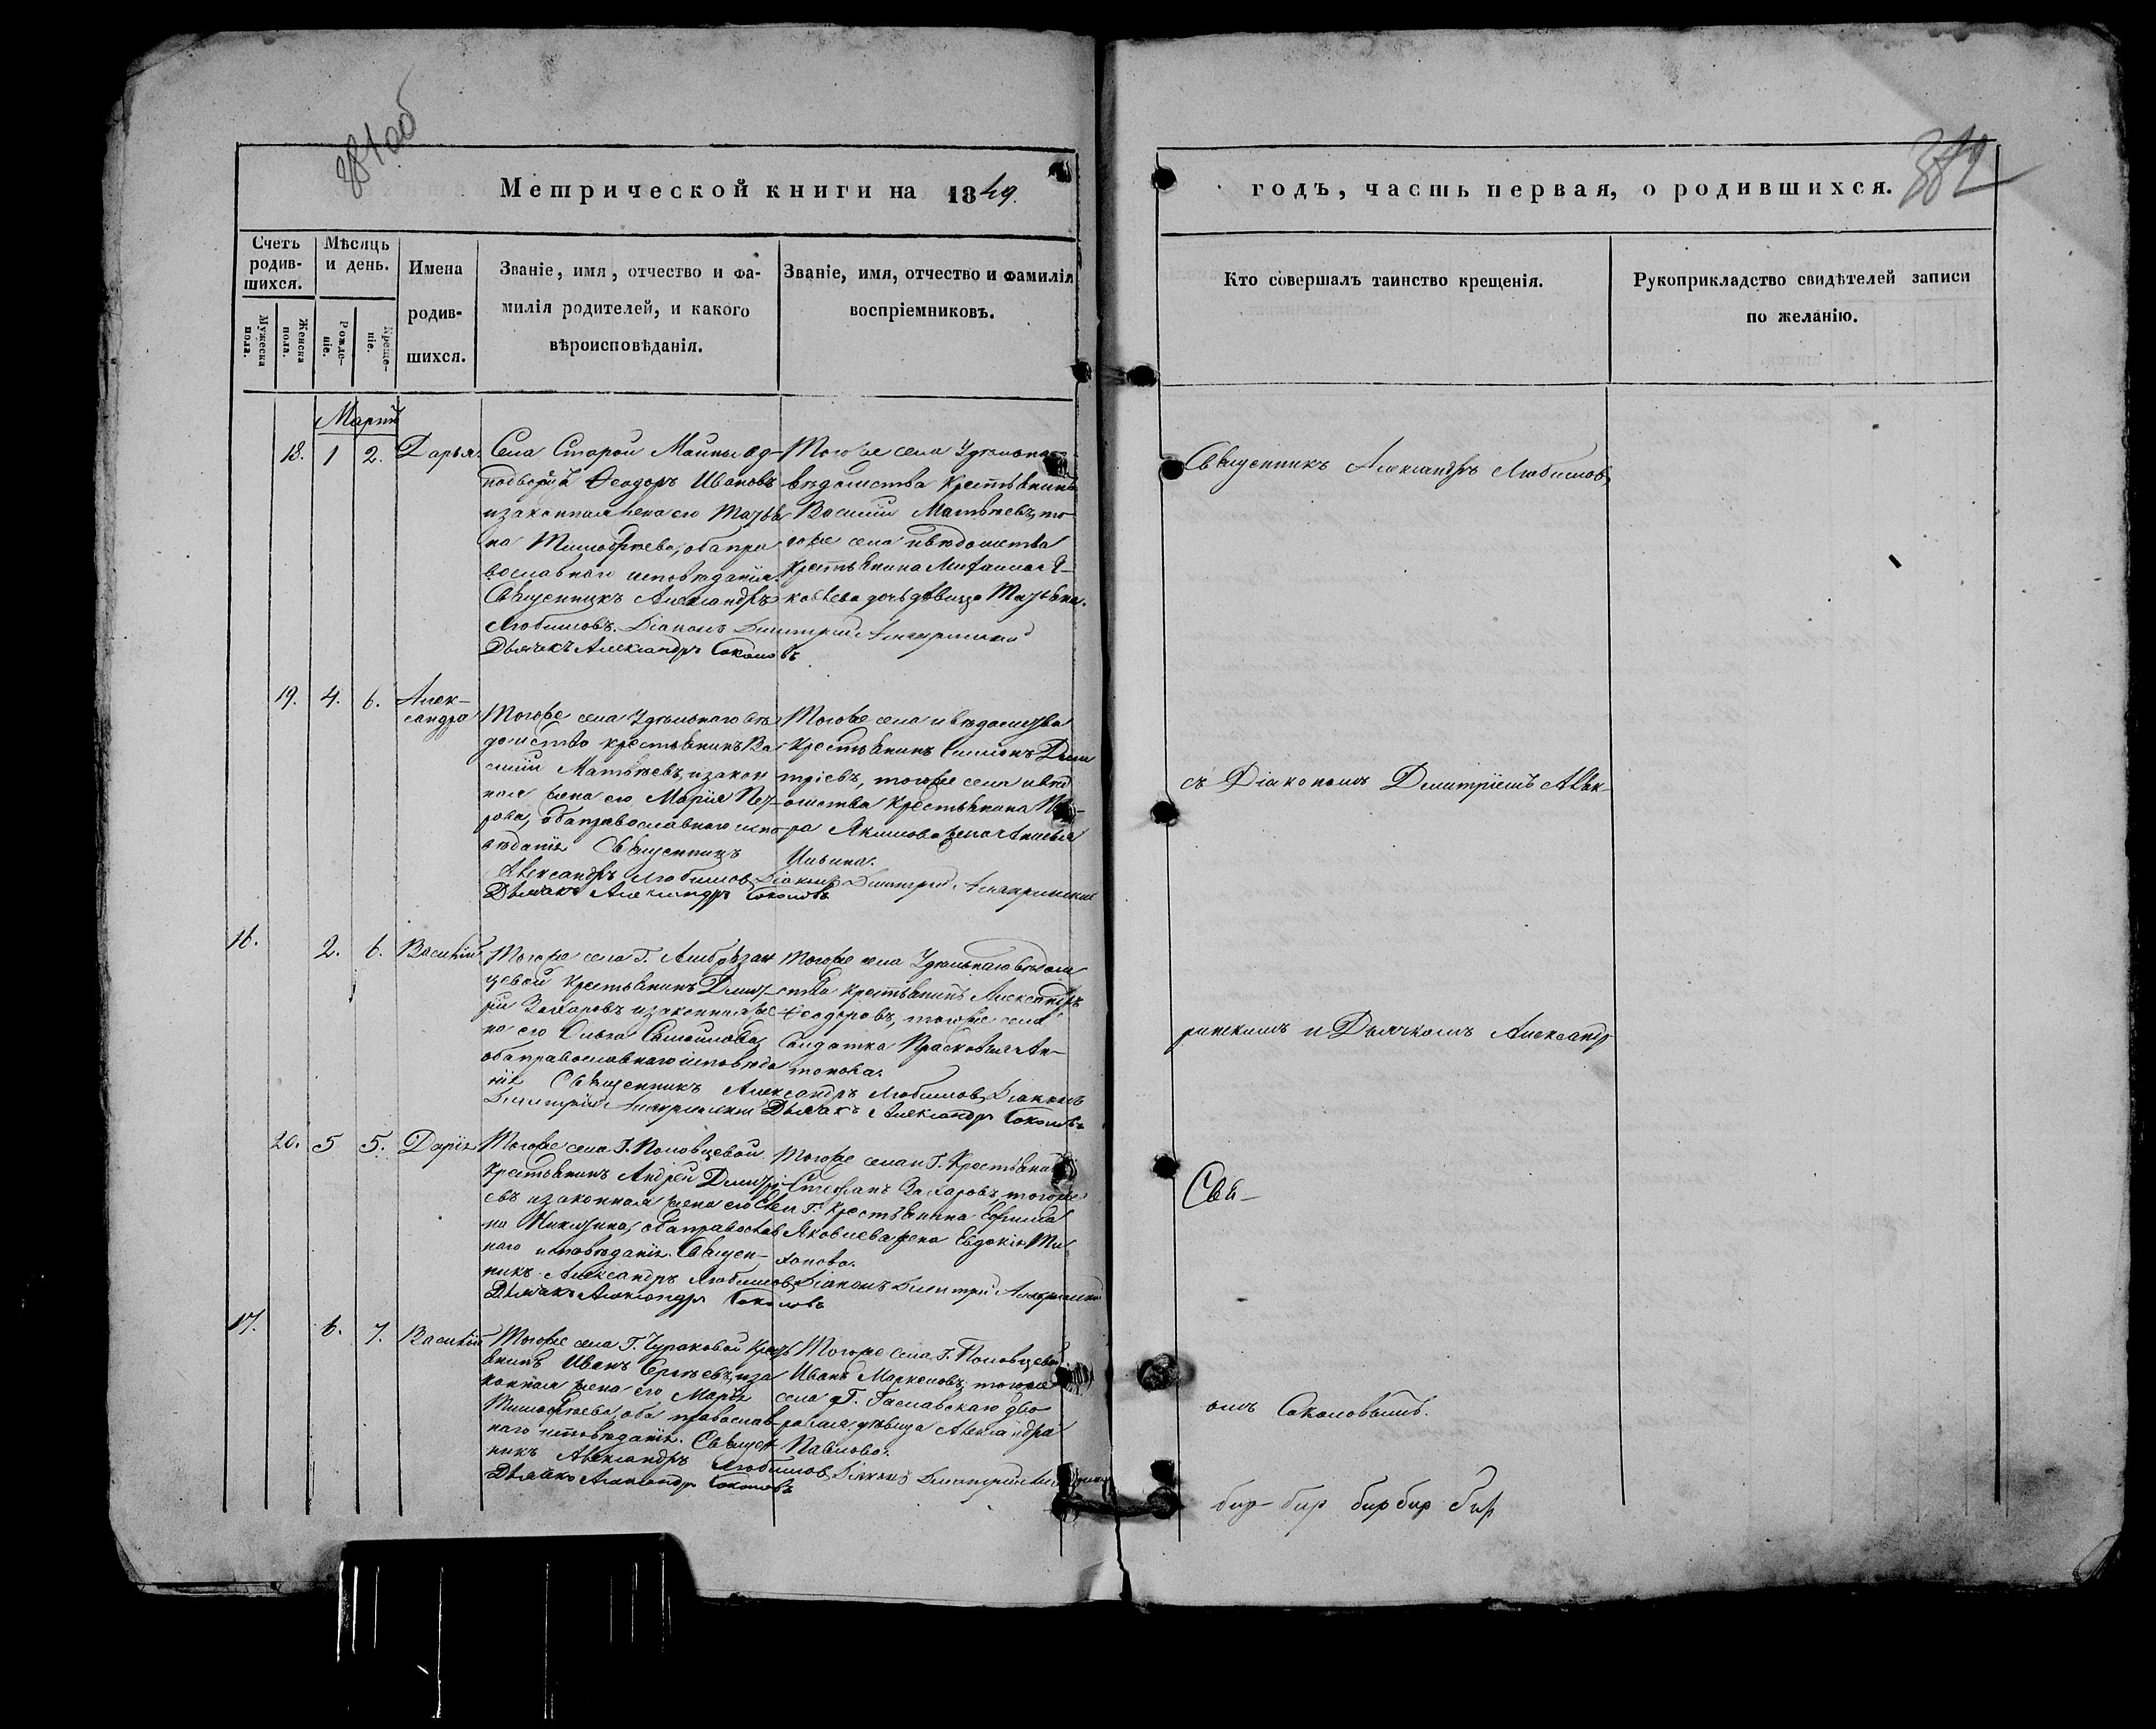 381об
382
Метрической книги на 1849.
годъ, часть первая, о родившихся.
Счетъ родив-
шихся.
Мѣсяць
и день.
Мужеска пола.
Женска пола.
Рожде-
ніе.
Креще-
ніе.
Имена
родив-
шихся.
Званіе, имя, отчество и фа-
милія родителей, и какого
вѣроисповѣданія.
Званіе, имя, отчество и фамилія
воспріемниковъ.
Кто совершалъ таинство крещенія.
Рукоприкладство свидѣтелей записи
по желанію.
Мартъ
18. 1 2. Дарья.
Села Старой Майны од-
нодворецъ Ѳеодоръ Ивановъ
и законная жена его Татья
на Тимофѣева, оба пра
вославнаго исповѣданія.
Священникъ Александръ
Любимовъ. Діаконъ Димитрій
Дьячекъ Александръ Соколовъ
Тогоже села Удѣльнаго
вѣдомства Крестьянинъ
Василій Матвѣевъ, то
гоже села и вѣдомства
Крестьянина Михаила Я-
ковлева дочь дѣвица Татьяна.
19. 4. 6. Алек-
сандра
Тогоже села Удѣльнаго вѣ
домства крестьянинъ Ва
силій Матвѣевъ, и закон
ная жена его Марія Пет-
рова, оба православнаго испо
вѣданія Священникъ
Александръ Любимовъ Діаконъ Димитрій
Дьячекъ Александръ Соколовъ
Тогоже села и вѣдомства
Крестьянинъ Симіонъ Дми
тріевъ, тогоже села и вѣд
омства Крестьянина
ра Якимова жена
Ильина.
16. 2. 6. Василій
Тогоже села Г.
цевой Крестьянинъ Дмит-
рій Захаровъ и законная же
на его Самойлова,
оба православнаго исповѣда
нія Священникъ Александръ Любимовъ Діаконъ
Димитрій Дьячекъ Александръ Соколовъ
Тогоже села Удѣльнаго вѣдом
ства Крестьянинъ Александръ
Ѳеодоровъ, тогоже села
Солдатка Прасковья Ан-
тонова.
20. 5 5. Дарія
Тогоже села Г. Половцевой
Крестьянинъ Андрей Дмитрі-
евъ и законная жена его
на Никитина, оба православ
наго исповѣданія. Священ-
никъ Александръ Любимовъ, Діаконъ Димитрій
Дьячекъ Александръ Соколовъ
Тогоже села и Г. Крестьянинъ
Степанъ Захаровъ, тогоже
села Г. Крестьянина Ефима
Яковлева жена Евдокія Ти
хонова.
17. 6. 7. Василій
Тогоже села Г. Чураковой Крест
янинъ Иванъ Сергѣевъ, и за
конная жена его Марія
Тимофѣева, оба православ
наго исповѣданія. Священ
никъ Александръ Любимовъ Діаконъ Димитрій
Дьячекъ Александръ Соколовъ
Тогоже села Г. Половцевой
Иванъ Маркеловъ, тогоже
села Г. дво
ровая дѣвица Александра
Павлова.
Священникъ Александръ Любимовъ
съ Діакономъ Димитріемъ
и Дьячкомъ Александр
омъ Соколовымъ.